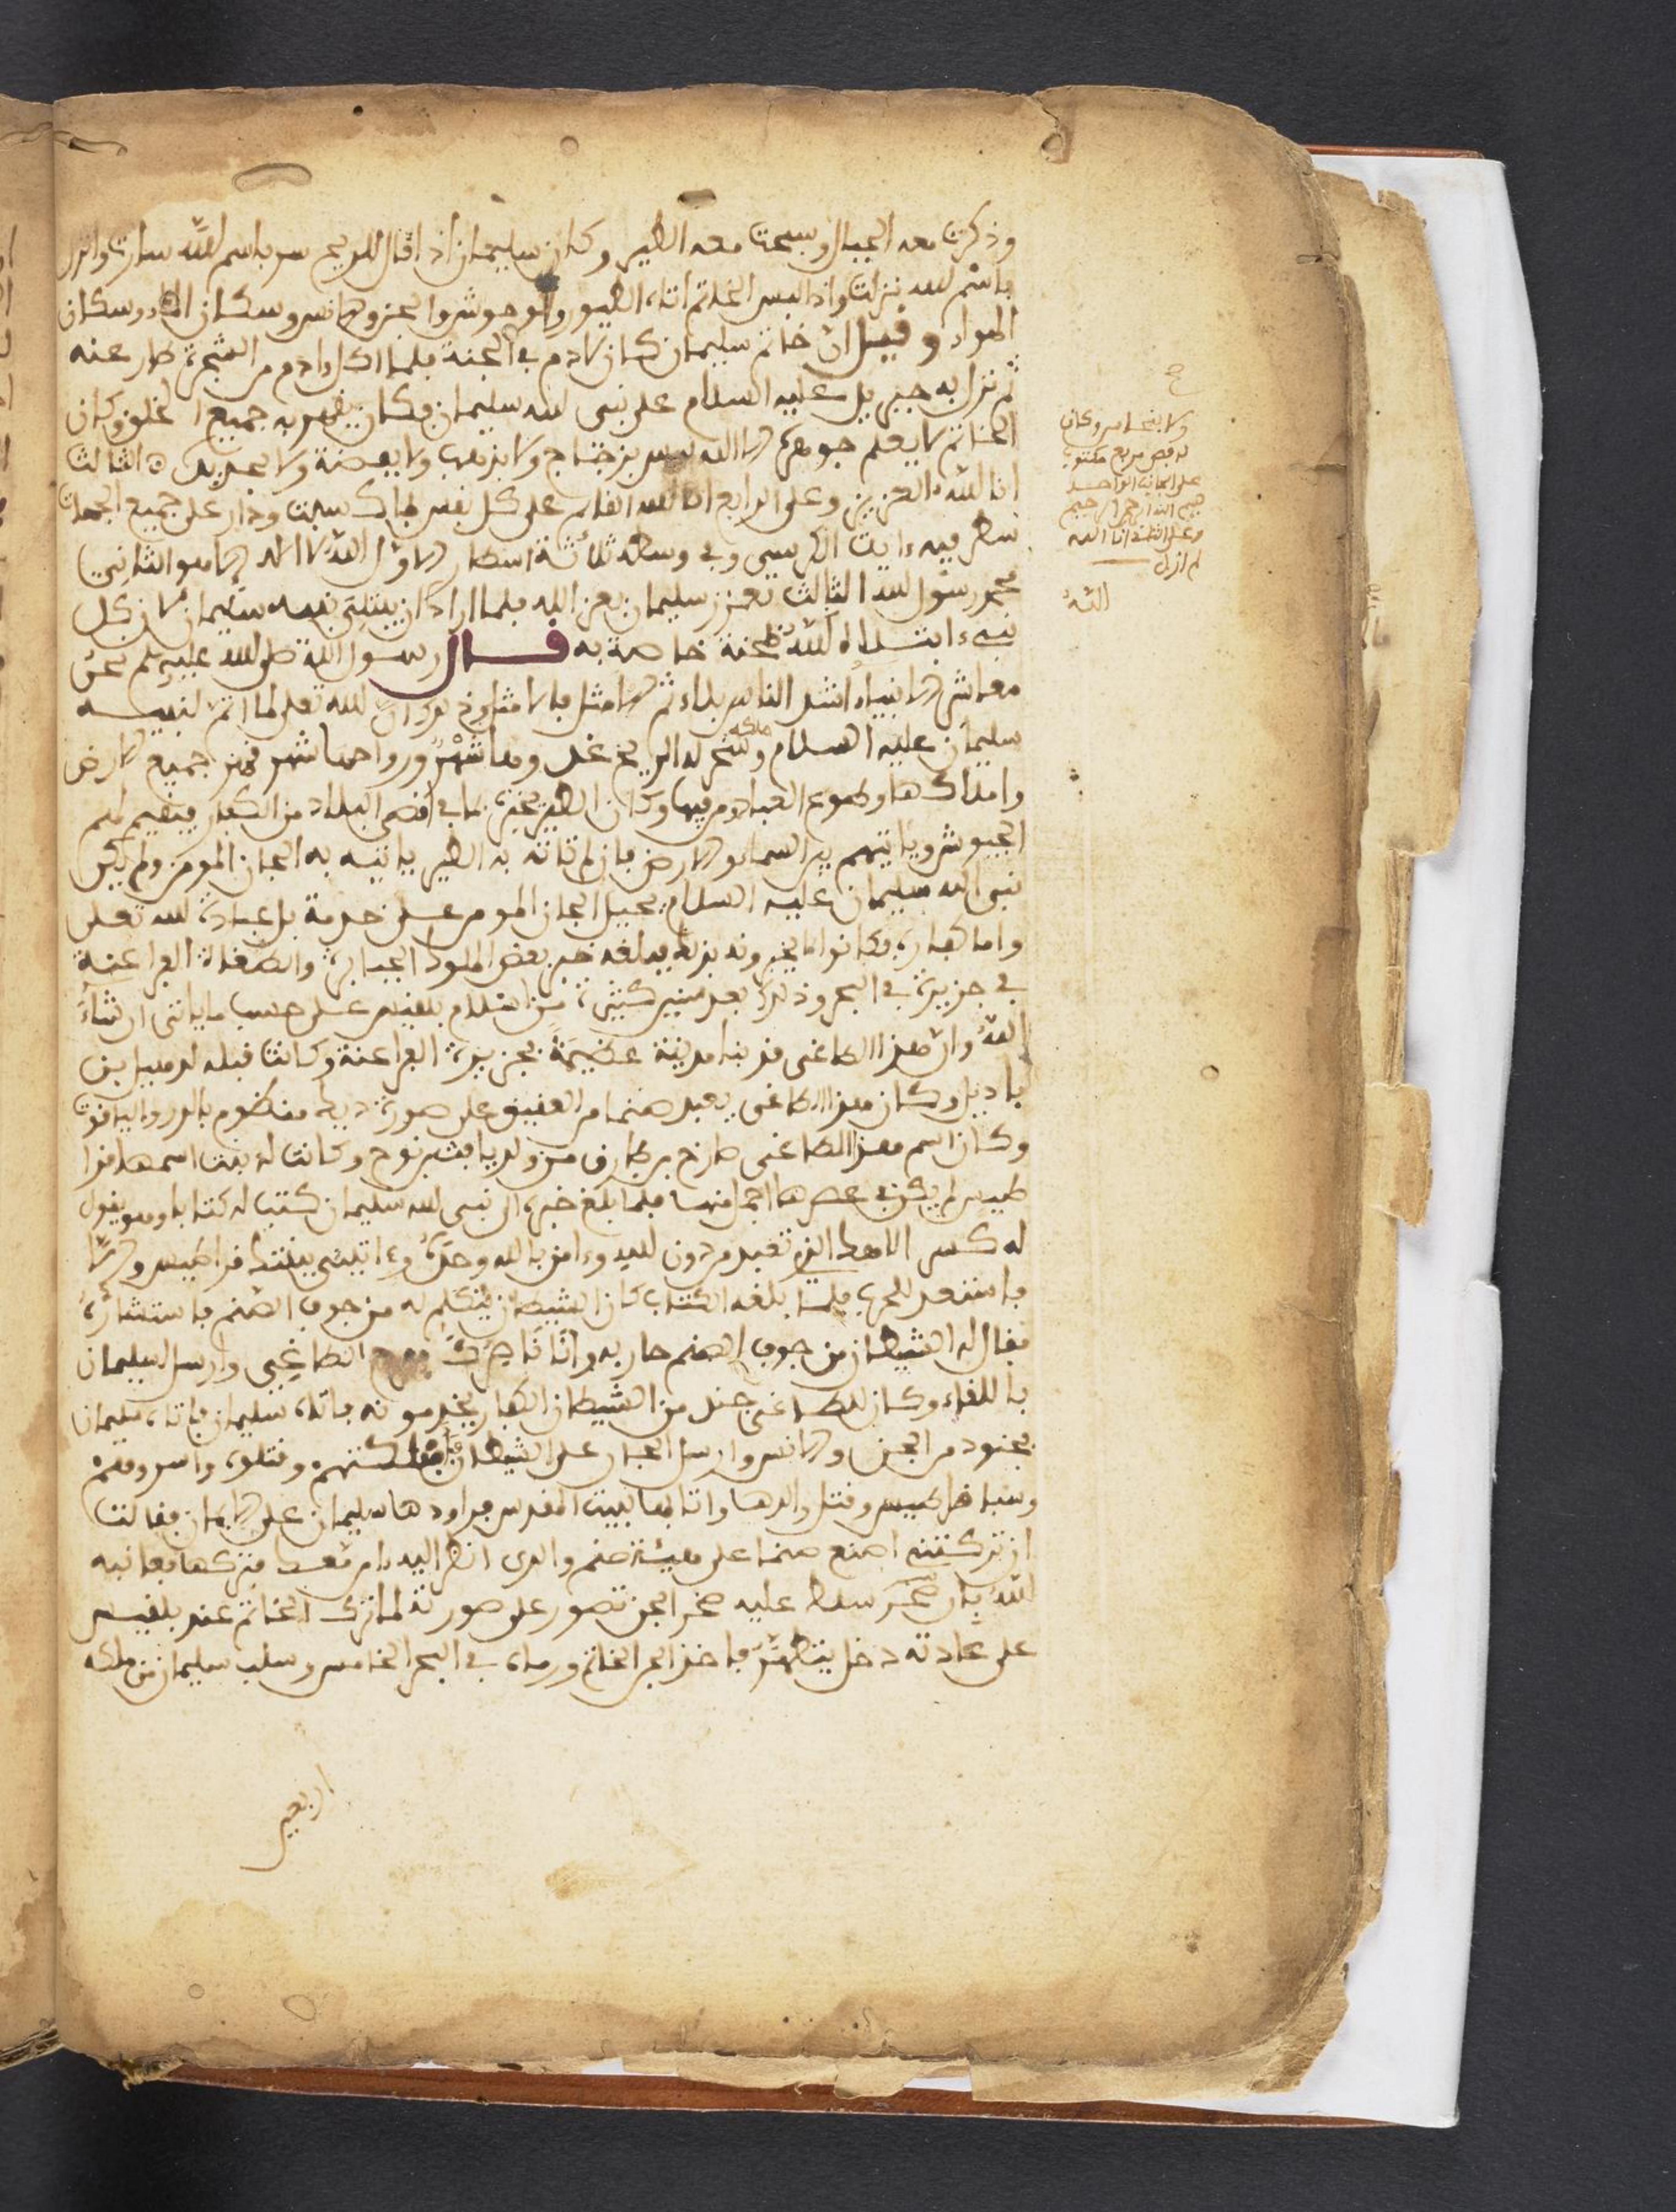 وذكرت معه الجبال وسبحت معه الطير وكان سليمان اذا قال للريح سر باسم الله سارت وانزل
باسم الله نزلت واذا لبس الخاتم اتاه الطيور والوحوش والجن والانس وسكان الماء وسكان
الهواء وقيل ان خاتم سليمان كان لادم في الجنة فلما اكل ءادم من الشجرة طار عنه
ثم نزل به جبريل عليه السلام على نبي الله سليمان فكان يقهر به جميع الخلق وكان
الخاتم لا يعلم جوهره الا الله ليس بزجاج ولا بذهب ولا بفضة ولا بحديد الثالث
انا الله العزيز وعلى الرابع انا الله القائم على كل نفس بما كسبت ودار على جميع الجهات
سطر فيه ءاية الكرسي وفي وسطه ثلاثة اسطار الاول الله لا اله الا هو الثاني
محمد رسول الله الثالث تعزز سليمان بعز الله فلما اراد ان يبتلي نبيه سليمان لان كل
نبيء ابتلاه الله بمحنة خاصة به قال رسول الله صلى الله عليه سلم نحن
معاشر الانبياء اشد الناس بلاء ثم الامثل فالامثل وذلك ان الله تعلى لما اتم لنبيه
سليمان عليه السلام ملكه وسخر له الريح غدوها شهر ورواحها شهر جميع الارض
واملاكها وطوع العباد من فيها وكان الطير يخبره بما في اقصى البلاد من الكفار فيقيم لهم
الجيوش ويأتيهم بين السماء والارض فان لم تاته به الطير ياتيه به الجان المومن ولم يكن
نبي الله سليمان عليه السلام يحيل الجان المومن على خدمة بل عبادة لله تعلى
واما كفاره فكانوا يخبرونه بذلك فبلغه خبر بعض الملوك الجبابرة والطغاة الفراعنة
في جزيرة في البحر وذلك بعد سنين كثيرة من اسلام بلقيس على حسب ما ياتي ان شاء
الله وان هذا الطاغي قد بنا مدينة عظيمة بجزيرة الفراعنة وكانت قبله لرميل بن
باديل وكان هذا الطاغي يعبد صنما من العقيق على صورة ديك منظوم بالدر والياقوت
وكان اسم هذا الطاغي طارخ بن طارق من ولد يافث بن نوح وكانت له بنت اسمها فرا
طيس لم يكن في عصرها اجمل منها فلما بلغ خبره الى نبي الله سليمان كتب له كتابا وهو يقول
له كسر الاهك الذي تعبد من دون الله وءامن بالله وحده وءاتيني ببنتك فراطيس والا
فاستعد للحرب فلما بلغه الكتاب كان الشيطان يتكلم له من جوف الصنم فاستشاره
فقال له الشيطان من جوف الصنم حاربه وانا ناصرك الطاغي وارسل لسليمان
باللقاء وكان للطاغي جند من الشيطان الكفار يخدمونه فاتاه سليمان فاتاه سليمان
بجنود من الجن والانس وارسل الجبار على الشيطان وقتلوه واسروهم
وسبا فراطيس وقتل والدها واتا بها لبيت المقدس فراودها سليمان على الايمان فقالت
ان تركتني اصنع صنما على هيئة صنم والدي انظر اليه فتركها فعاقبه
الله بان سلط عليه صخر الجن تصور على صورته لما ترك الخاتم عند بلقيس
على عادته دخل يتطهر فاخذ الجن الخاتم ورماه في البحر الخامس وسلب سليمان من ملكه
اربعين
ولا بنحاس وكان
له فص مربع مكتوب
على الجانب الواحد
بسم الله الرحمن الرحيم
وعلى الثاني انا الله
لم ازل
الله